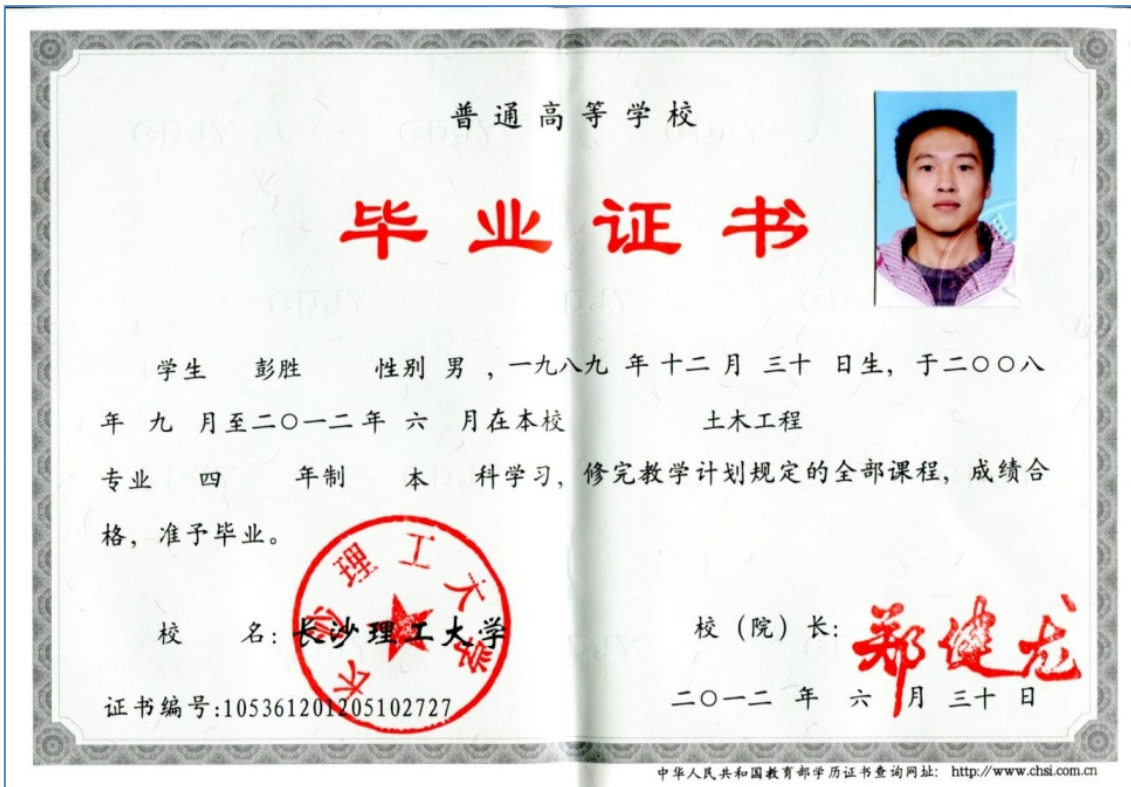 普通高等学校
毕业证书
学生 彭胜 性别 男 ，一九八九 年 十二 月 三十 日生，于二〇〇八
年 九 月至二〇一二年 六 月在本校 土木工程
专业 四 年制 本 科学习，修完教学计划规定的全部课程，成绩合
格，准予毕业。
长沙理工大学
校 名：长沙理工大学
校（院）长：郑健龙
证书编号:105361201205102727
二〇一二 年 六 月 三十 日
中华人民共和国教育部学历证书查询网址： http://www.chsi.com.cn